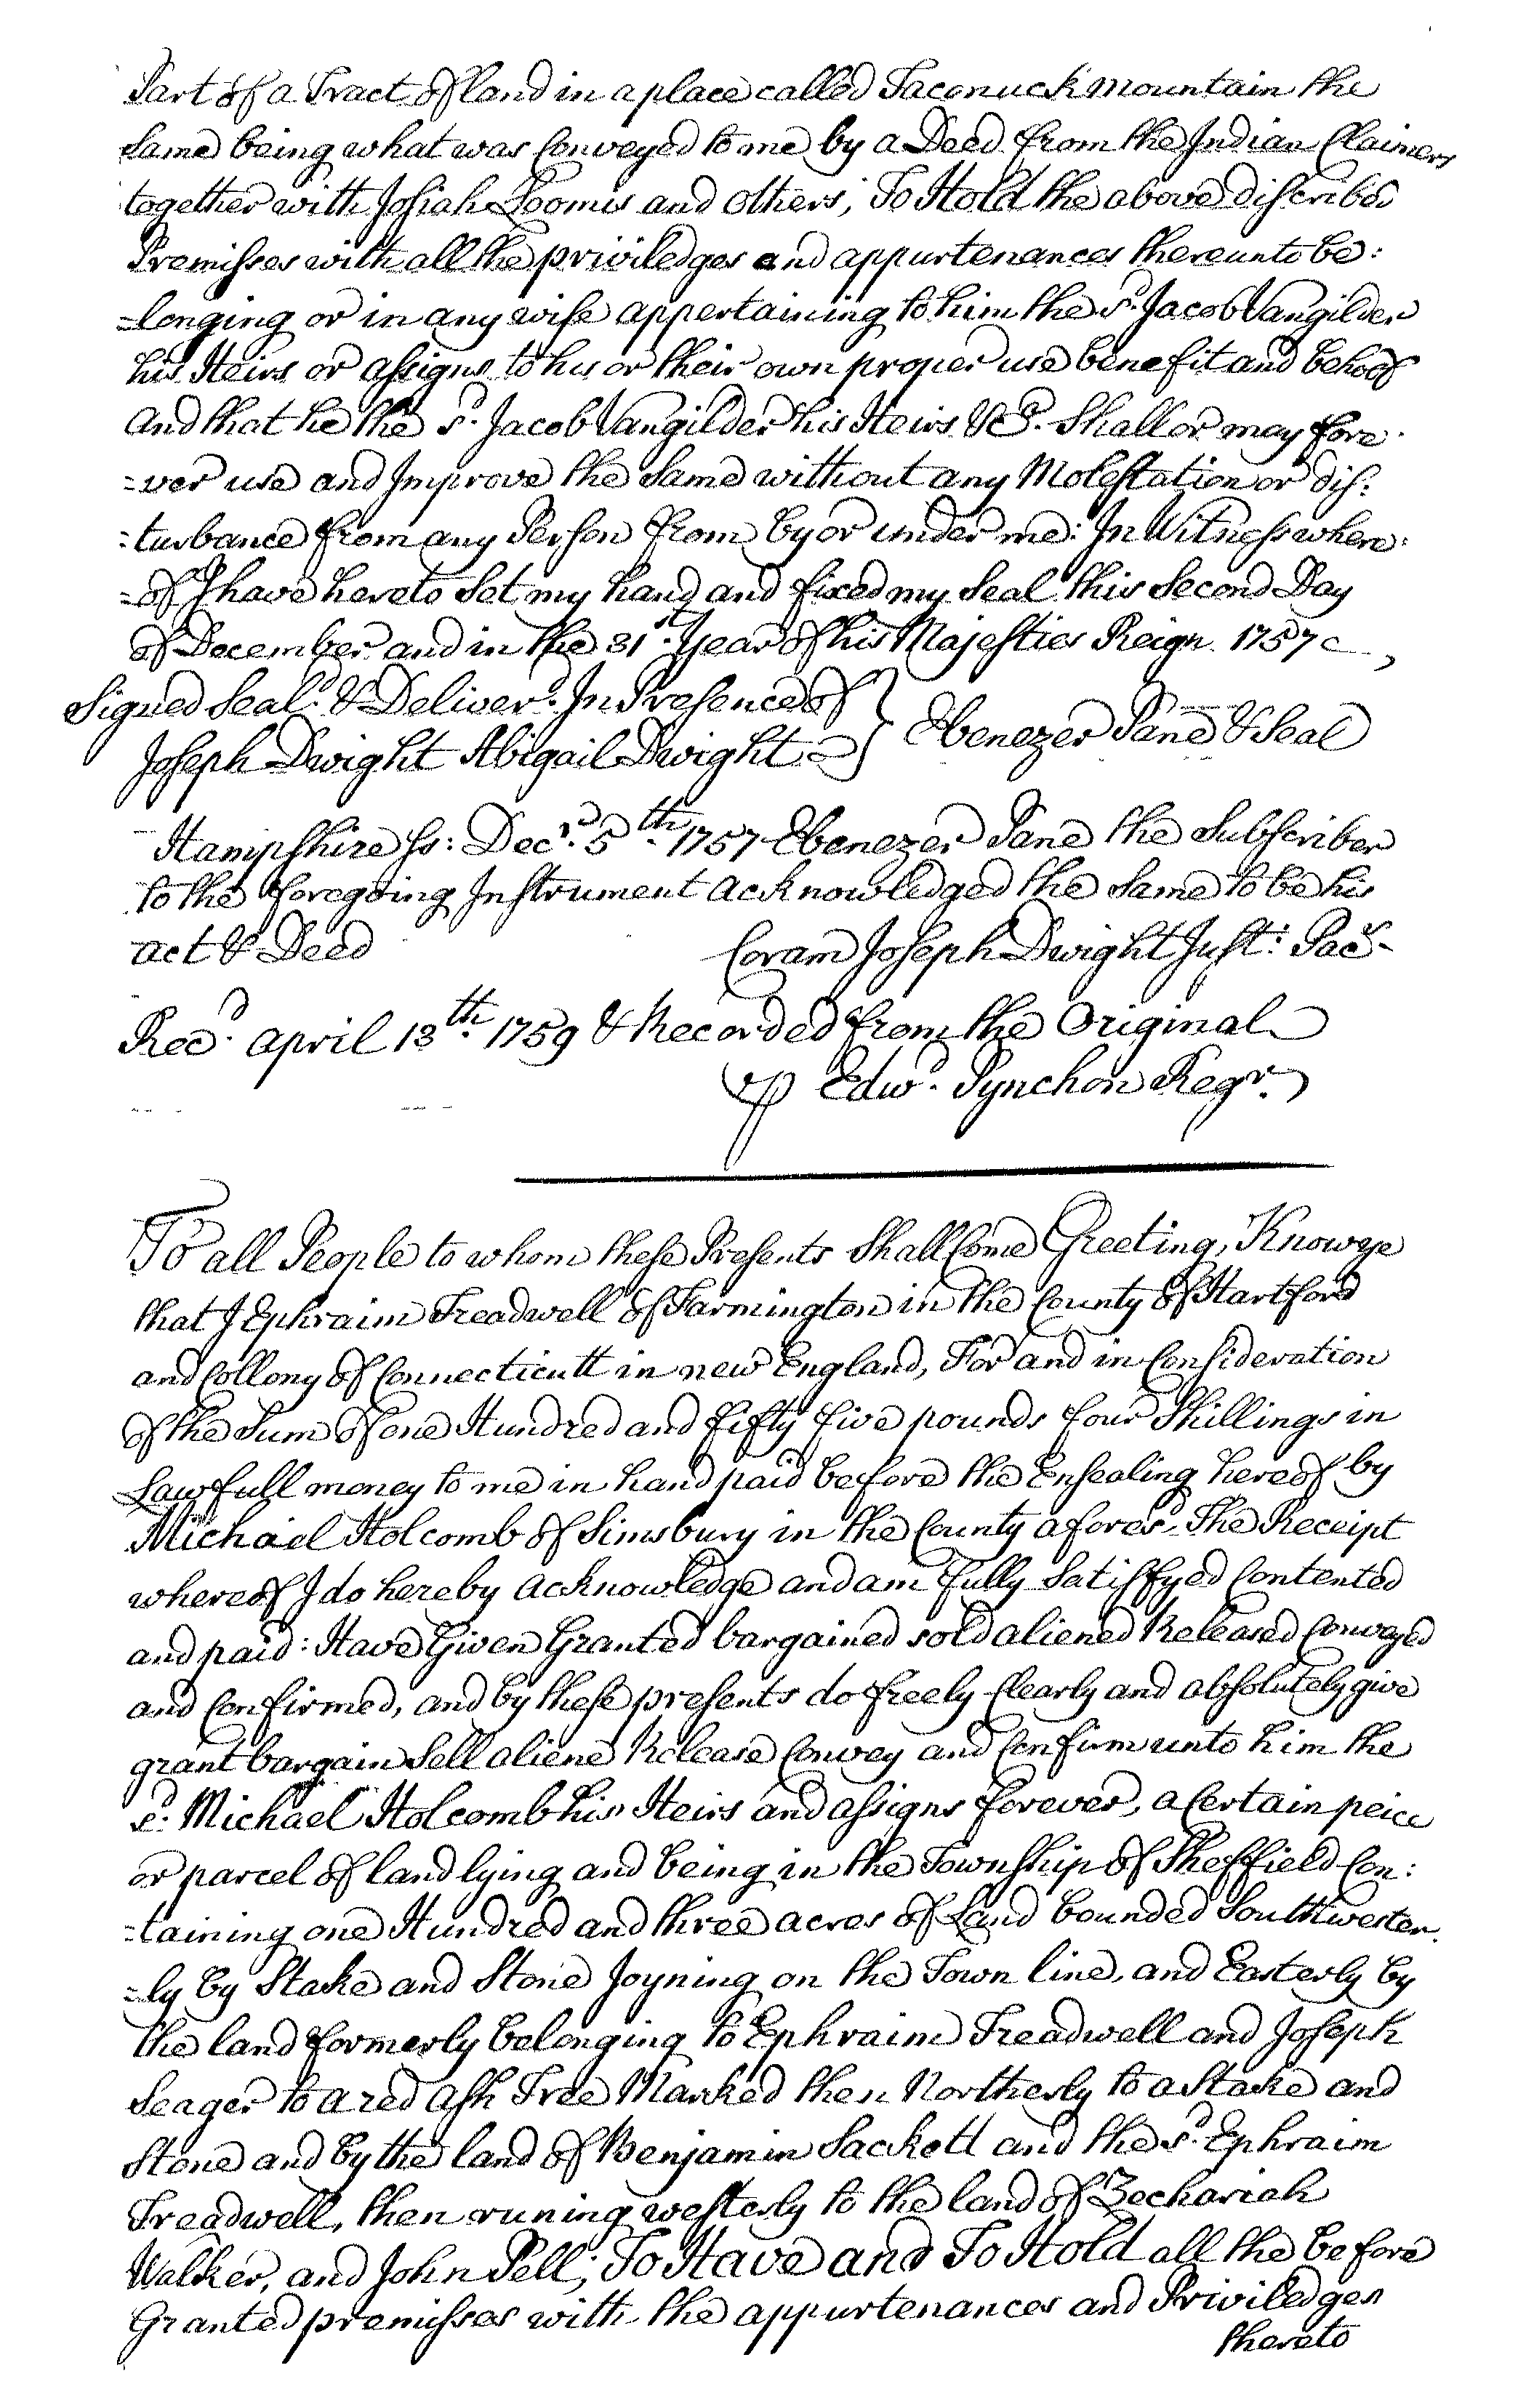 Part of a Tract of land in a place called Taconuck mountain the
Same being what was Conveyed to me by a Deed from the Indian Claimers
together with Josiah Loomis and others, To Hold the above discribed
Premisses with all the priviledges and appurtenances thereunto be:
=longing or in any wise appertaining to him the sd. Jacob Vangilder
his Heirs or assigns to his or their own proper use benefit and behoof
and that he the sd. Jacob Vangilder his Heirs &c. Shall or may fore
=ver use and Improve the Same without any Molestation or dis:
=turbance from any Person from by or under me: In Witness where:
=of I have hereto Set my hand and fixed my Seal this Second Day
of December and in the 31st. Year of his Majesties Reign 1757
Signed Seald. & Deliverd. In Presence of } Ebenezer Pane & Seal
Joseph Dwight Abigail Dwight
Hampshire ss: Decr. 5th. 1757 Ebenezer Pane the Subscriber
to the foregoing Instrument acknowledged the Same to be his
act & Deed Coram Joseph Dwight Just: Pacs
Recd. april 13th. 1759 & Recorded from the Original
⅌ Edwd. Pynchon Regr.
To all People to whom these Presents Shall Come Greeting, Know ye
that I Ephraim Treadwell of Farmington in the County of Hartford
and Collony of Connecticutt in new England, For and in Consideration
of the Sum of one Hundred and fifty five pounds four Shillings in
Lawfull money to me in hand paid before the Ensealing hereof by
Michael Holcomb of Simsbury in the County aforesd. The Receipt
whereof I do hereby acknowledge and am fully Satisfyed Contented
and paid: Have Given Granted bargained sold aliened Released Conveyed
and Confirmed, and by these presents do freely Clearly and absolutely give
grant bargain Sell aliene Release Convey and Confirm unto him the
sd. Michael Holcomb his Heirs and assigns forever, a Certain peice
or parcel of land lying and being in the Township of Sheffield Con:
=taining one Hundred and three acres of Land bounded Southwester
=ly by Stake and Stone Joyning on the Town line, and Easterly by
the land formerly belonging to Ephraim Treadwell and Joseph
Seager to a red ash Tree Marked then Northerly to a Stake and
Stone and by the land of Benjamin Sackett and the sd. Ephraim
Treadwell, then runing westerly to the land of Zechariah
Walker, and John Pell; To Have and To Hold all the before
Granted premisses with the appurtenances and Priviledges
thereto